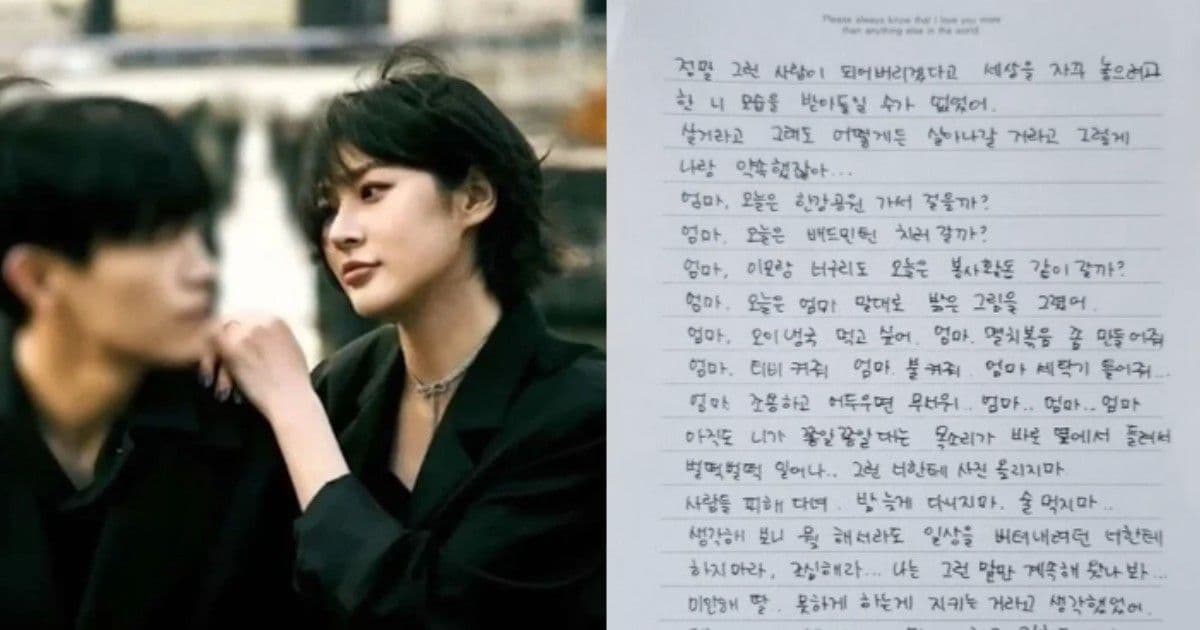 Please always know that I love you more
than anything else in the world
정말 그런 사람이 되어버리겠다고 세상을 자꾸 놓으려고
한 니 모습을 받아들일 수가 없었어.
살거라고 그래도 어떻게든 살아나갈 거라고 그렇게
나랑 약속했잖아...
엄마, 오늘은 한강공원 가서 걸을까?
엄마. 오늘은 배드민턴 치러 갈까?
엄마, 이모랑 너구리도 오늘은 봉사활동 같이 갈까?
엄마. 오늘은 엄마 말대로 밝은 그림을 그렸어.
엄마, 오이냉국 먹고 싶어. 엄마. 멸치볶음 좀 만들어줘
엄마. 티비 켜줘 엄마. 불 켜줘. 엄마 세탁기 돌어줘...
엄마 조용하고 어두우면 무서워.. 엄마.. 엄마.. 엄마
아직도 니가 꽁알꽁알대는 목소리가 바로 옆에서 들려서
벌떡벌떡 일어나.. 그런 너한테 사진 올리지마
사람들 피해 다녀. 밤 늦게 다니지마. 술 먹지마..
생각해 보니 뭘 해서라도 일상을 버텨내려던 너한테
하지마라, 조심해라... 나는 그런 말만 계속해 왔나봐...
미안해 딸. 못하게 하는게 지키는 거라고 생각했었어.